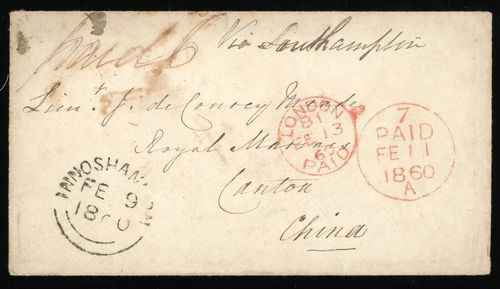 paid 6
Via Southampton
Lieut. J. de Courcy Meade
Royal Marines
Canton
China
LONDON
B1
FE 13
60
PAID
7
PAID
FE 11
1860
A
INNOSHANNON
FE 9
1860